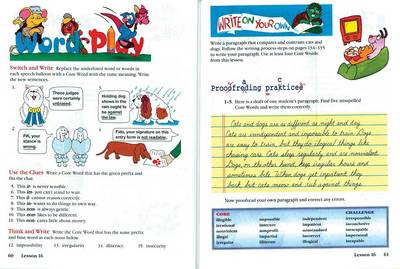 Word Play
Switch and Write Replace the underlined word or words in
each speech balloon with a Core Word with the same meaning. Write
the new sentences.
1.
These judges
were certainly
unbiased.
3.
Holding dog
shows in the
rain ought to be
against the
law.
2.
Fifi, your
stance is
wrong.
4.
Fido, your signature on this
entry form is not readable.
Use the Clues Write a Core Word that has the given prefix and
fits the clue.
5. This in- is never sensible.
6. This im- just can't stand to wait.
7. This il- cannot reason correctly.
8. This in- wants to do things its own way.
9. This non- is always gentle.
10. This non- likes to be different.
11. This non- cares little about money.
Think and Write Write the Core Word that has the same prefix
and base word as each noun below.
12. impossibility 13. irregularity 14. illiteracy 15. insecurity
60 Lesson 16
WRITE ON YOUR OWN
Write a paragraph that compares and contrasts cats and
dogs. Follow the writing process steps on pages 134–135
to write your paragraph. Use at least four Core Words
from this lesson.
a c
Proofreding practices
1–5. Here is a draft of one student's paragraph. Find five misspelled
Core Words and write them correctly.
Cats and dogs are as different as night and day.
Cats are and impossible to train. Dogs
are easy to train, but they do illogical things like
chasing cars. Cats sleep regularly and are
Dogs, on the other hand, keep hours and
sometimes bite. When dogs get impatient they
bark, but cats meow and rub against things.
Now proofread your own paragraph and correct any errors.
CORE CHALLENGE
illegible impossible independent irresponsible
irrational insecure impatient inconceivable
nonviolent nonprofit nonstandard inescapable
illegal impartial incorrect impersonal
irregular illiterate illogical incapable
Lesson 16 61